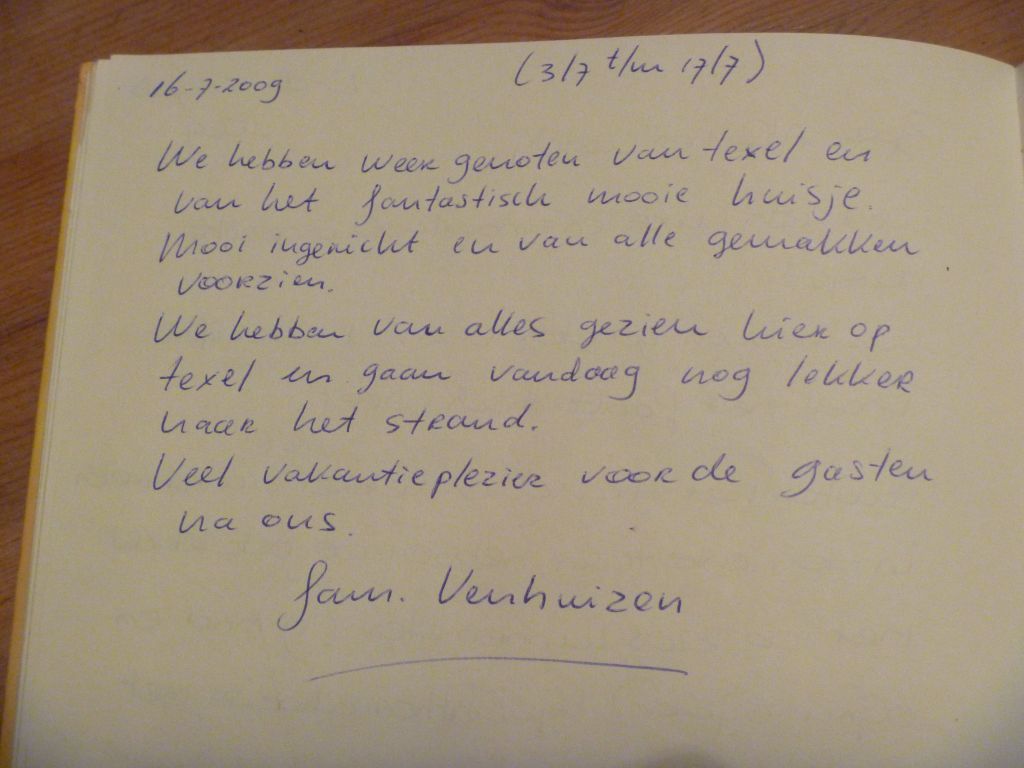 16-7-2009 (3/7 t/m 17/7)
We hebben weer genoten van texel en
van het fantastisch mooie huisje.
Mooi ingericht en van alle gemakken
voorzien.
We hebben van alles gezien hier op
texel en gaan vandaag nog lekker
naar het strand.
Veel vakantieplezier voor de gasten
na ons.
fam. Venhuizen